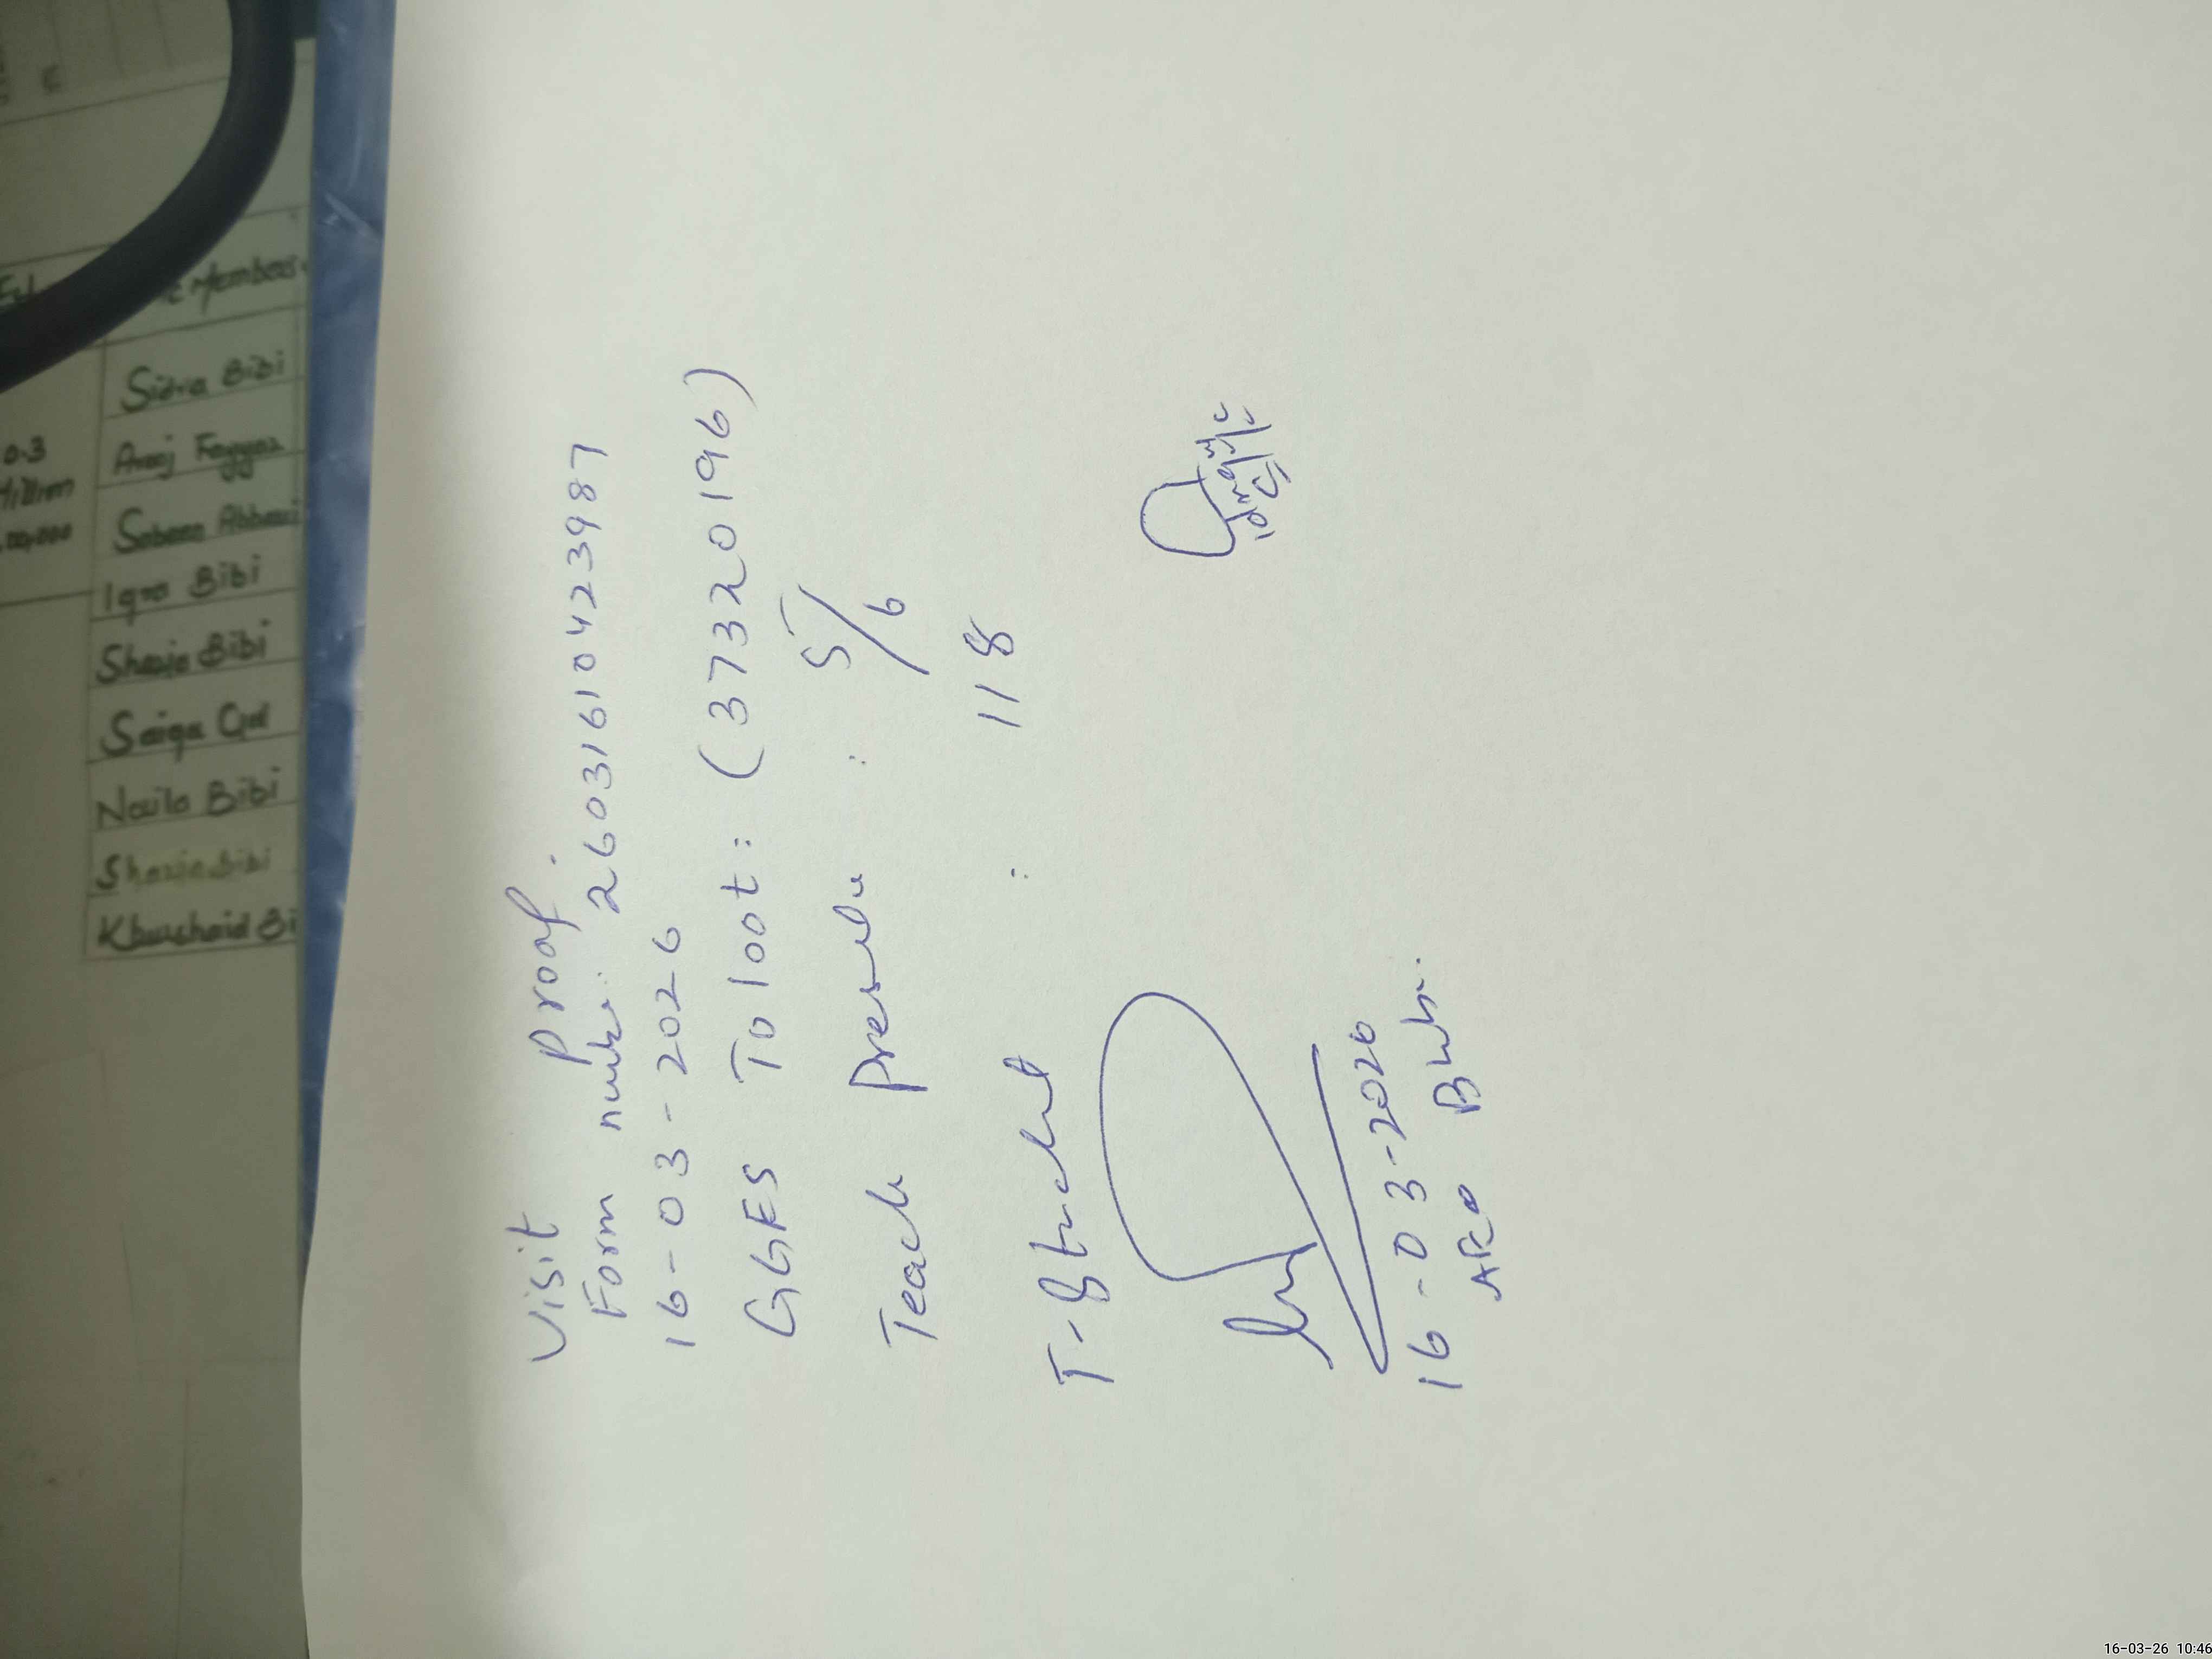 Visit Proof.
Form number: 260316104423987
16-03-2026
GGES Toloot: (37320196)
Teach Presele : 5/6
T- : 118
16-03-2026
AEO
E Members
Sidra Bibi
Arooj Fayyaz
Sabeen Abbasi
Iqra Bibi
Shazia Bibi
Saiqa Gul
Naila Bibi
Shazia Bibi
Khurshaid Bi
0.3
Million
16-03-26 10:46